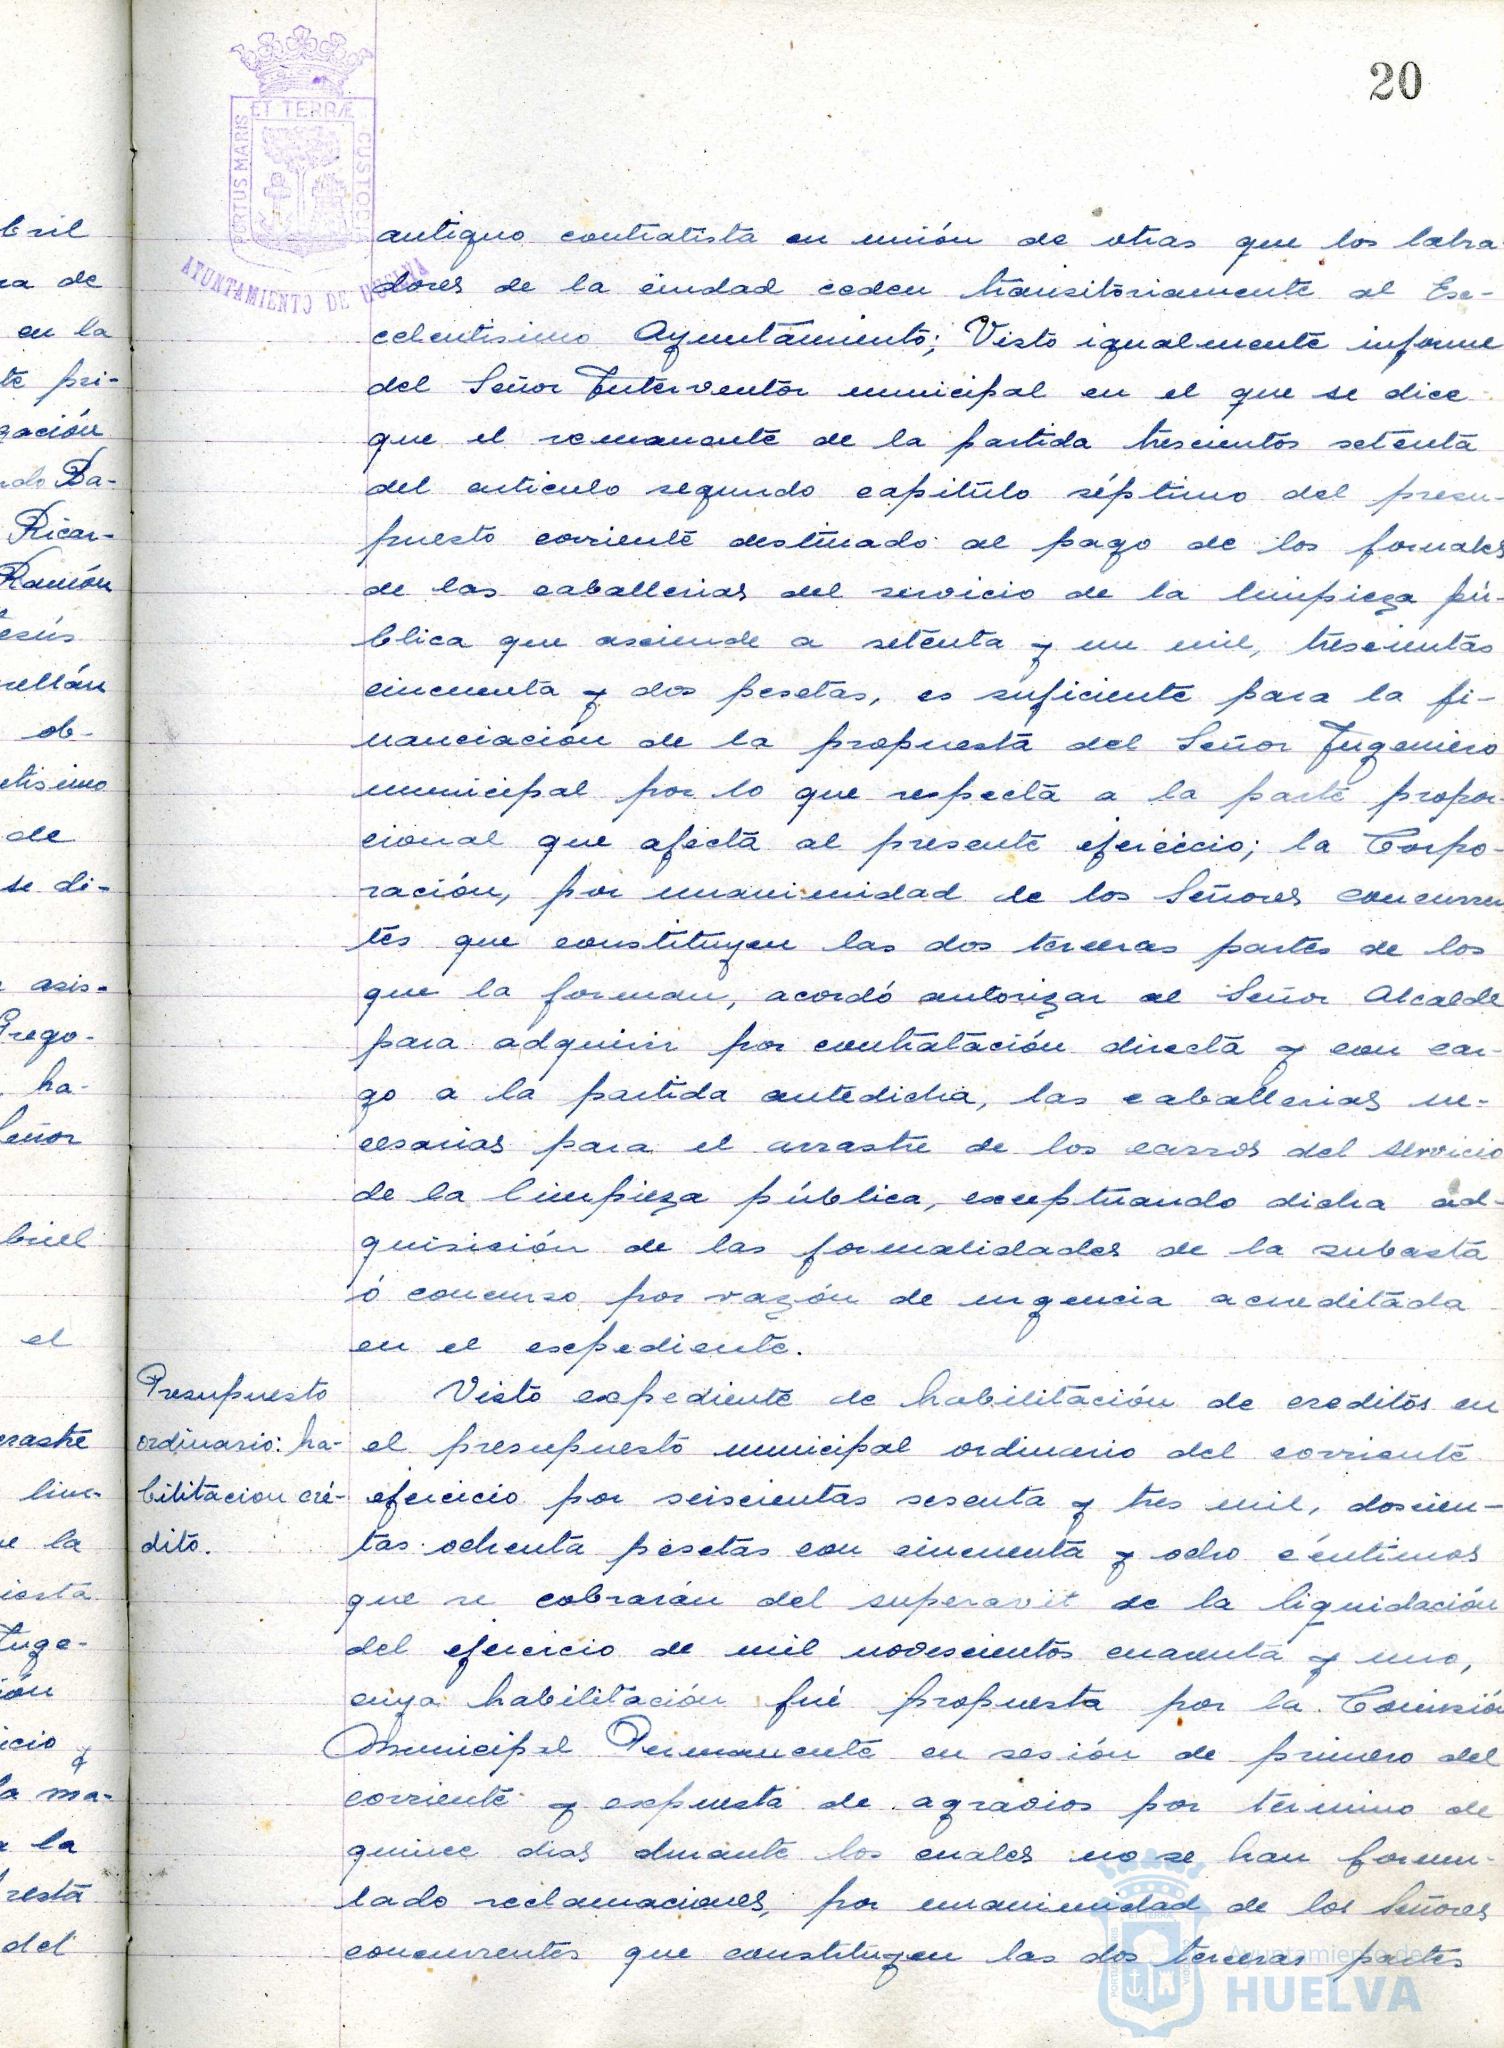 20
ET TERRÆ
PORTUS MARIS
CUSTODIA
AYUNTAMIENTO DE HUELVA
bril
ra de
en la
te pri-
gación
rdo Ba-
Ricar-
Ramón
esús
rellán
ob-
etisimo
de
se di-
asis-
Grego-
ha-
Señor
briel
el
rrastre
lim-
la
Inge-
icio y
la ma-
la
resta
del
antiguo contratista en unión de otras que los labra-
dores de la ciudad ceden transitoriamente al Exc-
celentisimo Ayuntamiento; Visto igualmente informe
del Señor Interventor municipal en el que se dice
que el remanente de la partida trescientos setenta
del articulo segundo capitulo séptimo del presu-
puesto corriente destinado al pago de los jornales
de las caballerias del servicio de la limpieza pú-
blica que asciende a setenta y un mil, trescientas
cincuenta y dos pesetas, es suficiente para la fi-
nanciación de la propuesta del Señor Ingeniero
municipal por lo que respecta a la parte propor-
cional que afecta al presente ejercicio; la Corpo-
ración, por unanimidad de los Señores concurren
tes que constituyen las dos terceras partes de los
que la forman, acordó autorizar al Señor Alcalde
para adquirir por contratación directa y con car-
go a la partida antedicha, las caballerias ne-
cesarias para el arrastre de los carros del servicio
de la limpieza pública, exceptuando dicha ad-
quisición de las formalidades de la subasta
ó concurso por razón de urgencia acreditada
en el expediente.
Presupuesto
ordinario: ha-
bilitacion cré-
dito.
Visto expediente de habilitación de creditos en
el presupuesto municipal ordinario del corriente
ejercicio por seiscientas sesenta y tres mil, doscien-
tas ochenta pesetas con cincuenta y ocho céntimos
que se cobrarán del superavit de la liquidación
del ejercicio de mil novescientos cuarenta y uno,
cuya habilitación fué propuesta por la Comisión
Municipal Permanente en sesión de primero del
corriente y expuesta de agravios por termino de
quince dias durante los cuales no se han formu-
lado reclamaciones, por unanimidad de los Señores
concurrentes que constituyen las dos terceras partes
Ayuntamiento de
HUELVA